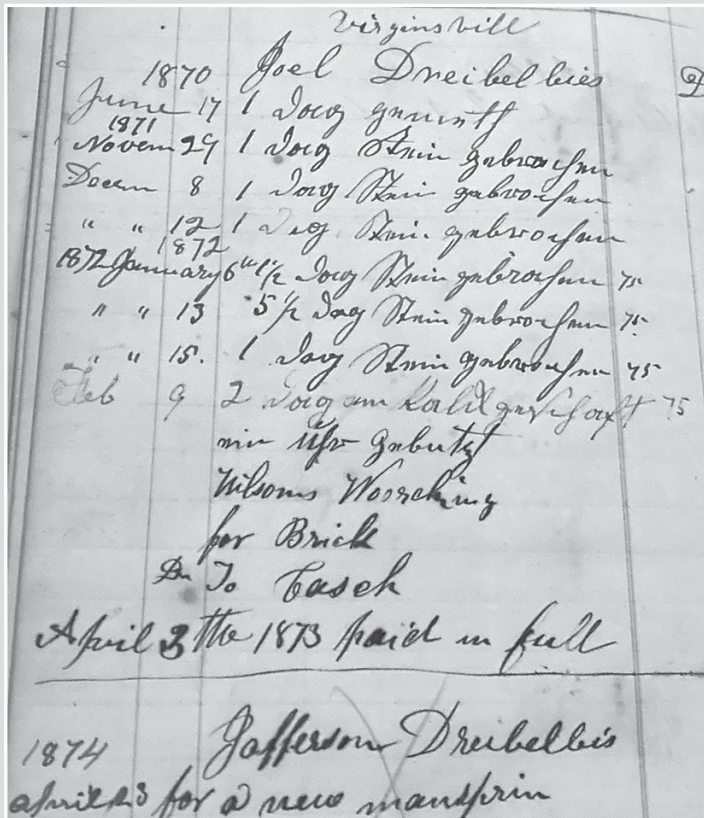 Virginsvill
1870 Joel Dreibelbies
June 17 1 Doag gemeth
1871
Novem 29 1 Doag Stein gebrochen
Decem 8 1 Doag Stein gebrochen
" " 12 1 Dag Stein gebrochen
1872
1872 January 6th 1 1/2 Doag Stein gebrochen 75
" " 13 5 1/2 Dag Stein gebrochen 75
" " 15. 1 Doag Stein gebrochen 75
Feb 9 2 Doag am Kalk geschaft 75
ein Uhr gebutzt
Wilsoms Woorching
for Brick
To Casch
April 3 the 1873 paid in full
1874 Jafferson Dreibelbis
april 23 for a new mansprin